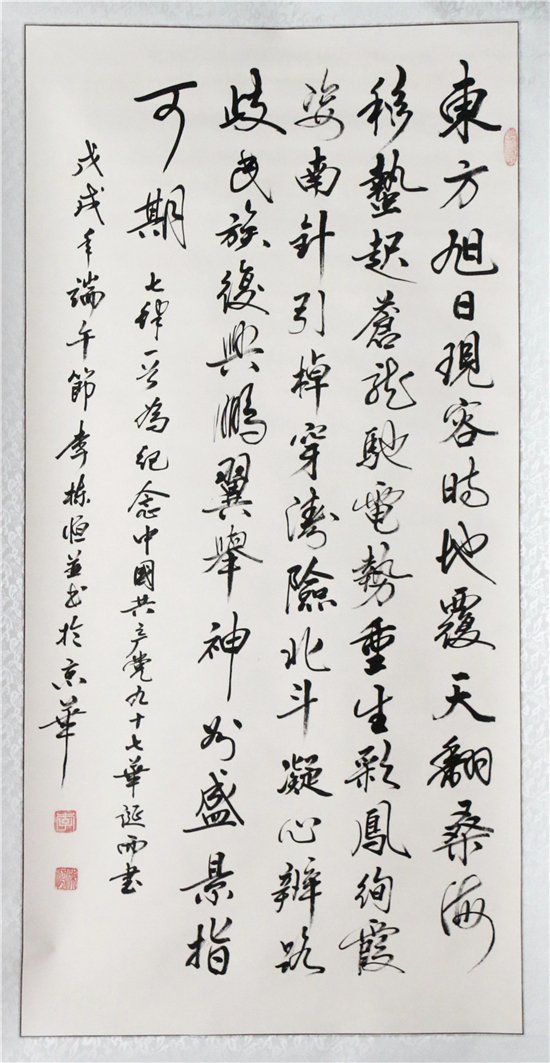 東方旭日現容時地覆天翻桑海
移蟄起蒼龙馳電勢重生彩鳳絢霞
姿南針引棹穿濤險北斗凝心辨路
歧民族復興鵬翼舉神州盛景指
可期
七律一首為纪念中國共产党九十七華诞而書
戊戌年端午節李栋恒並书於京華